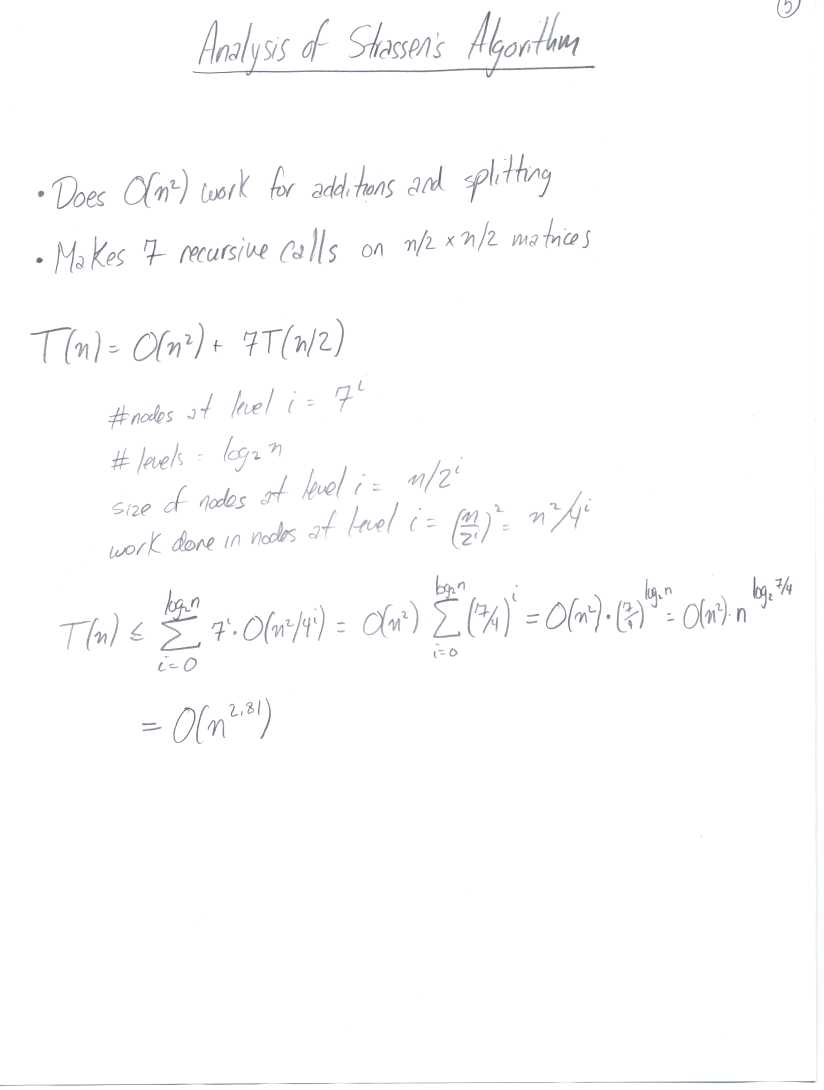 5
Analysis of Strassen's Algorithm
• Does O(n²) work for additions and splitting
• Makes 7 recursive calls on n/2 × n/2 matrices
T(n) = O(n²) + 7T(n/2)
#nodes at level i = 7^i
# levels = log₂ n
size of nodes at level i = n/2^i
work done in nodes at level i = (n/2^i)² = n²/4^i
T(n) ≤ ∑_{i=0}^{log₂n} 7^i · O(n²/4^i) = O(n²) ∑_{i=0}^{log₂n} (7/4)^i = O(n²) · (7/4)^{log₂n} = O(n²) · n^{log₂ 7/4}
= O(n^{2,81})